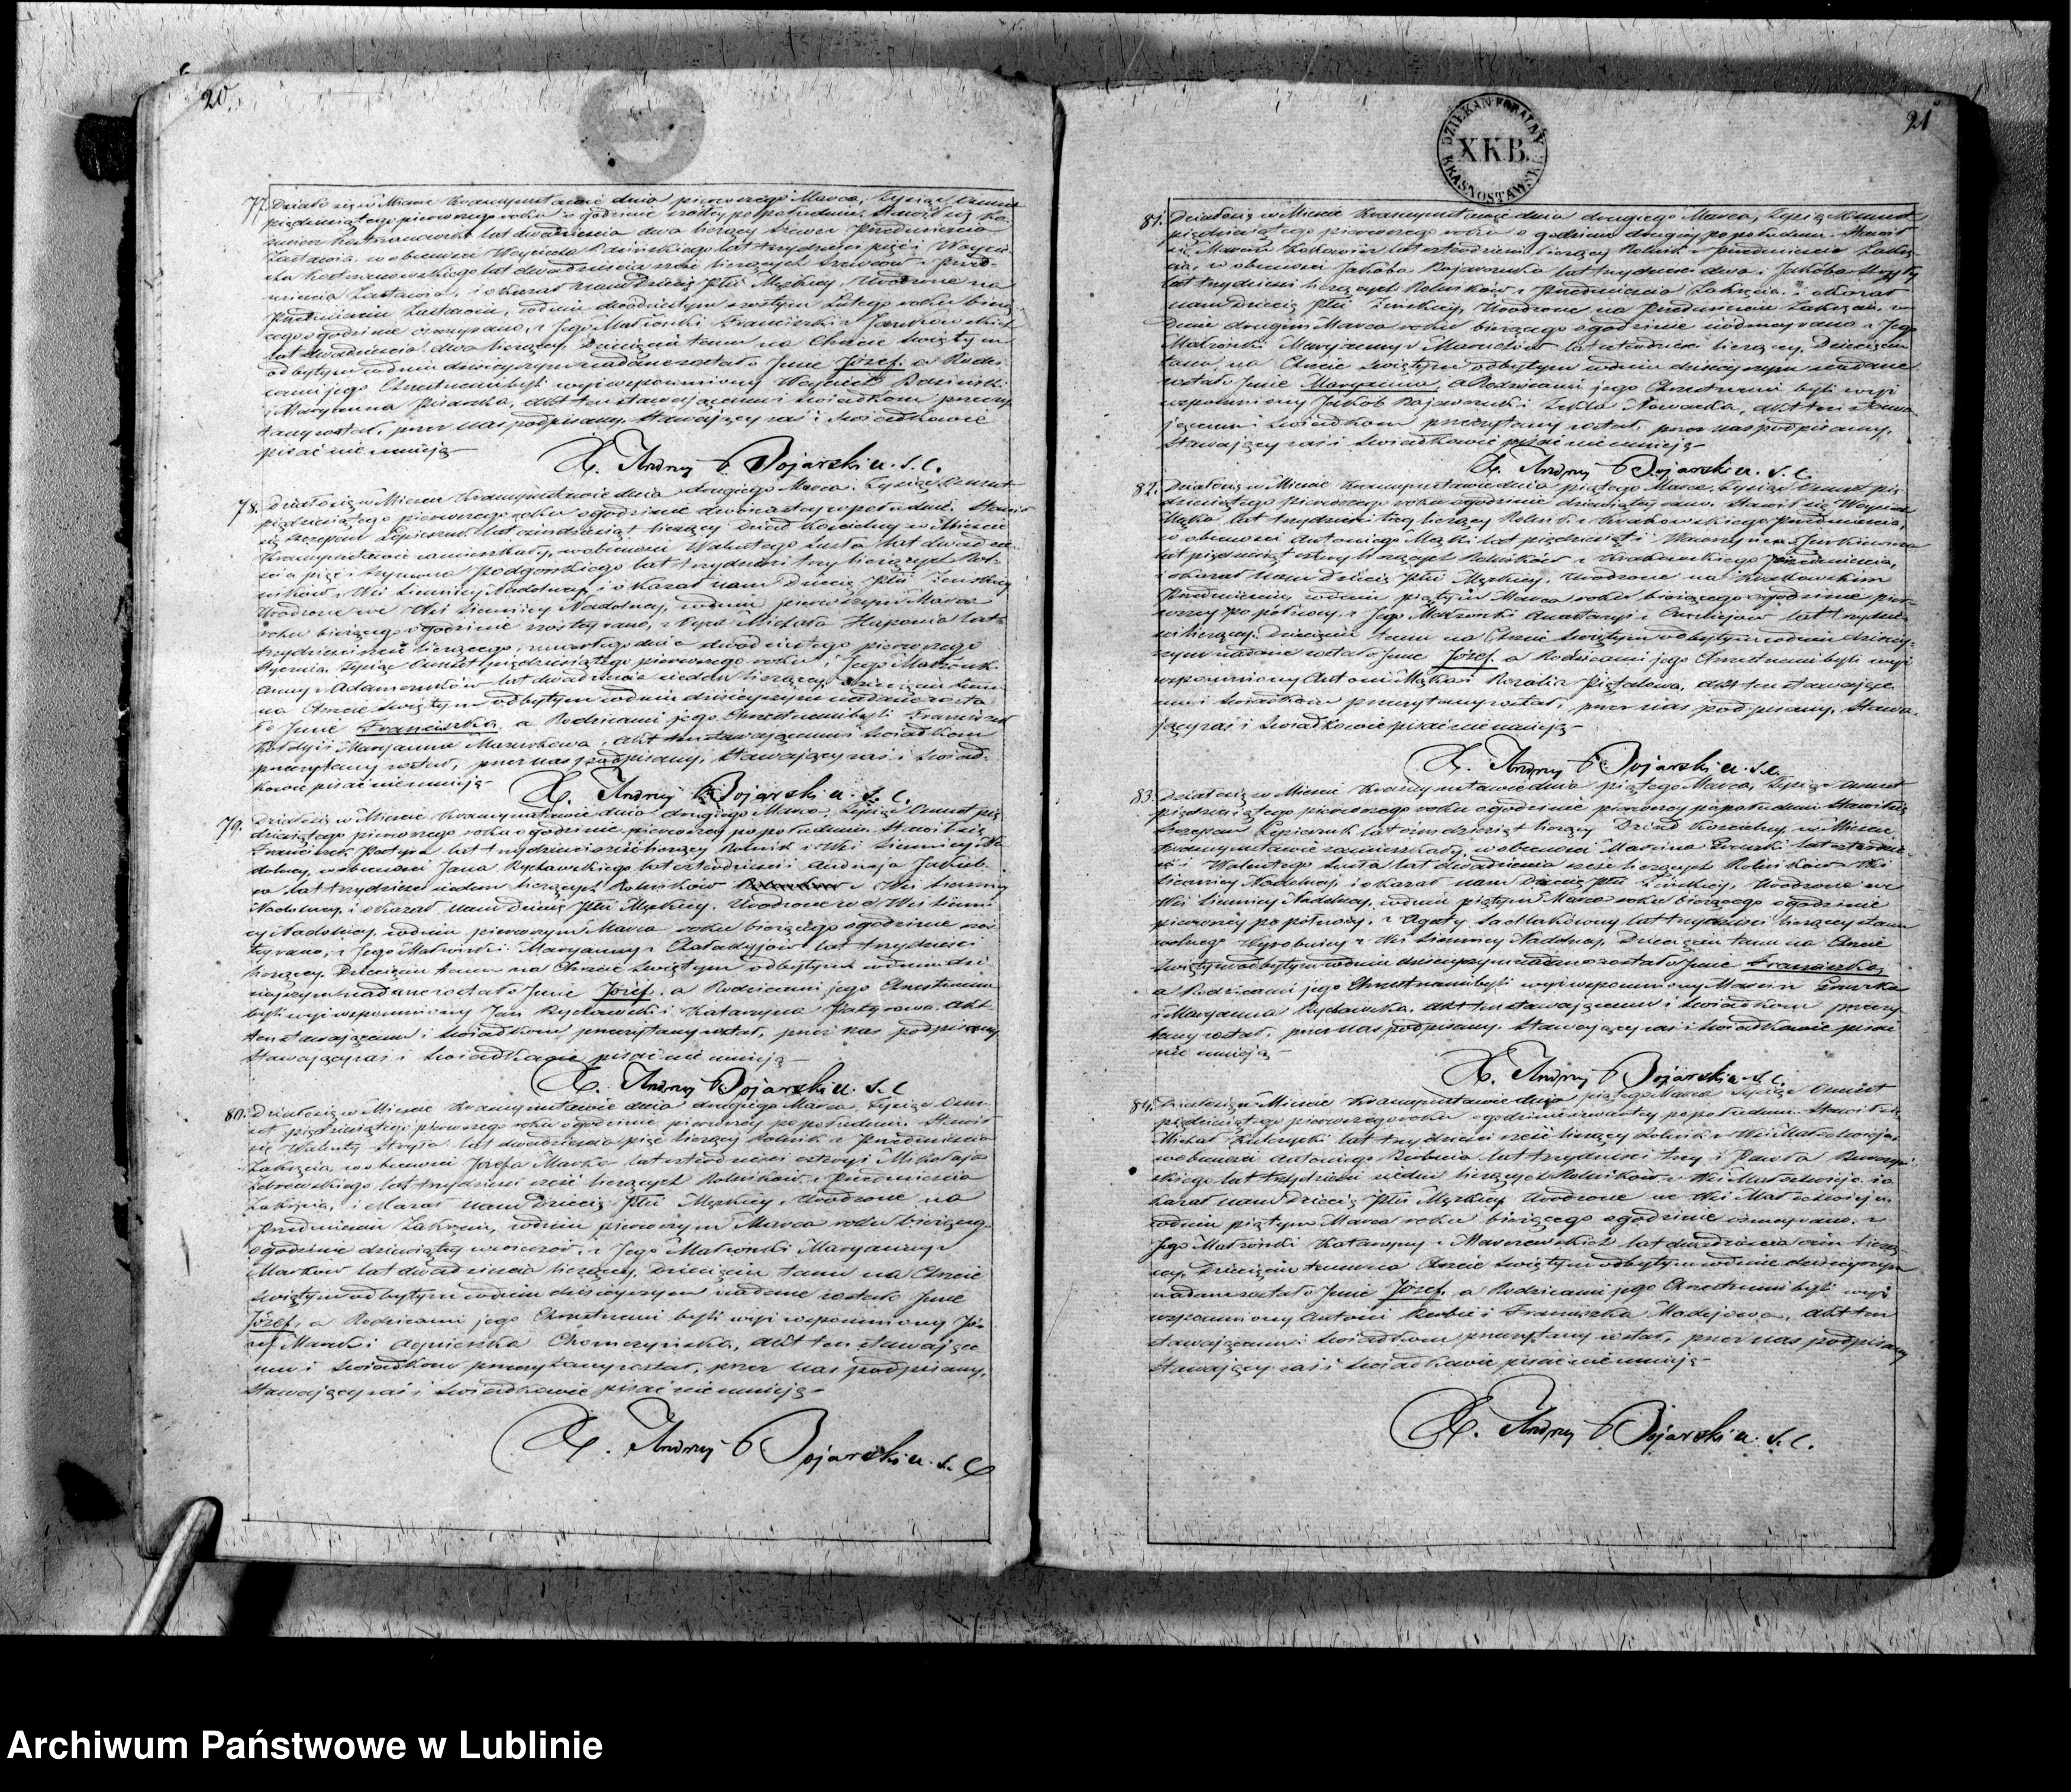 20
77. Działo się w Mieście Krasnymstawie dnia pierwszego Marca, Tysiąc Ośmset
pięćdziesiątego pierwszego roku o godzinie szóstej po południu. Stawił się
lat dwadzieścia dwa liczący Szewc z Przedmieścia
Zastawia, w obecności Wojciecha lat trzydzieści pięć i Wojcie-
cha lat dwadzieścia sześć liczących Szewców z Przed-
mieścia Zastawia, i okazał nam Dziecię Płci Męskiej, Urodzone na
Przedmieściu Zastawiu, w dniu dwudziestym szóstym Lutego roku bieżą-
cego o godzinie rano, z Jego Małżonki Franciszki z
lat dwadzieścia dwa liczącej. Dziecięciu temu na Chrzcie Świętym
odbytym w dniu dzisiejszym nadane zostało Imie Józef, a Rodzi-
cami jego Chrzestnemi byli wyż wspomniony Wojciech
i Maryanna Pisarska, Akt ten stawającemu i Świadkom przeczy-
tany został, przez nas podpisany, Stawający zaś i Świadkowie
pisać nie umieją
X. Andrzej Bojarski u. s. c.
78. Działo się w Mieście Krasnymstawie dnia drugiego Marca, Tysiąc Ośmset
pięćdziesiątego pierwszego roku o godzinie dwunastej w południe. Stawił
się Szczepan lat ośmdziesiąt liczący Dziad Kościelny w Mieście
Krasnymstawie zamieszkały, w obecności Walentego lat dwadzie-
ścia pięć i Szymona Podgórskiego lat trzydzieści trzy liczących Rol-
ników z Wsi Siennicy Nadolnej, i okazał nam Dziecię Płci Żeńskiej
Urodzone we Wsi Siennicy Nadolnej, w dniu pierwszym Marca
roku bieżącego o godzinie szóstej rano, z Ojca Michała lat
trzydzieści sześć liczącego, zmarłego dnia dwudziestego pierwszego
Stycznia Tysiąc Ośmset pięćdziesiątego pierwszego roku, i Jego Małżonki
Anny z lat dwadzieścia siedem liczącej, Dziecięciu temu
na Chrzcie Świętym odbytym w dniu dzisiejszym nadane zosta-
ło Imie Franciszka, a Rodzicami jego Chrzestnemi byli Franciszek
i Maryanna Mazurkowa, Akt ten stawającemu i Świadkom
przeczytany został, przez nas podpisany, Stawający zaś i Świad-
kowie pisać nie umieją
X. Andrzej Bojarski u. s. c.
79. Działo się w Mieście Krasnymstawie dnia drugiego Marca, Tysiąc Ośmset pię-
dziesiątego pierwszego roku o godzinie pierwszej po południu. Stawił się
Franciszek lat trzydzieści sześć liczący Rolnik z Wsi Siennicy Na-
dolnej, w obecności Jana Rycławskiego lat czterdzieści i Andrzeja
lat trzydzieści siedem liczących Rolników z Wsi Siennicy
Nadolnej, i okazał nam Dziecię Płci Męskiej, Urodzone we Wsi Sienni-
cy Nadolnej, w dniu pierwszym Marca roku bieżącego o godzinie szós-
tej rano, z Jego Małżonki Maryanny z lat trzydzieści
liczącej. Dziecięciu temu na Chrzcie Świętym odbytym w dniu dzi-
siejszym nadane zostało Imie Józef, a Rodzicami jego Chrzestnemi
byli wyż wspomniony Jan Rycławski i Katarzyna Akt
ten stawającemu i Świadkom przeczytany został, przez nas podpisany
Stawający zaś i Świadkowie pisać nie umieją
X. Andrzej Bojarski u. s. c.
80. Działo się w Mieście Krasnymstawie dnia drugiego Marca, Tysiąc Ośm-
set pięćdziesiątego pierwszego roku o godzinie pierwszej po południu. Stawił
się Walenty lat dwadzieścia pięć liczący Rolnik z Przedmieścia
Zakręcia, w obecności Józefa lat czterdzieści cztery i Mikołaja
lat trzydzieści sześć liczących Rolników z Przedmieścia
Zakręcia, i okazał nam Dziecię Płci Męskiej, Urodzone na
Przedmieściu Zakręciu, w dniu pierwszym Marca roku bieżącego
o godzinie dziewiątej wieczór, z Jego Małżonki Maryanny z
lat dwadzieścia liczącej, Dziecięciu temu na Chrzcie
Świętym odbytym w dniu dzisiejszym nadane zostało Imie
Józef, a Rodzicami jego Chrzestnemi byli wyż wspomniony Jó-
zef i Agnieszka Akt ten stawające-
mu i Świadkom przeczytany został, przez nas podpisany,
Stawający zaś i Świadkowie pisać nie umieją
X. Andrzej Bojarski u. s. c.
DZIEKAN FORALNY
XKB.
KRASNOSTAWSKI
21
81. Działo się w Mieście Krasnymstawie dnia drugiego Marca, Tysiąc Ośmset
pięćdziesiątego pierwszego roku o godzinie drugiej po południu. Stawił
się Marcin lat czterdzieści liczący Rolnik z Przedmieścia Zakrę-
cia, w obecności Jakóba lat trzydzieści dwa i Jakóba
lat trzydzieści liczących Rolników z Przedmieścia Zakręcia, i okazał
nam Dziecię Płci Żeńskiej, Urodzone na Przedmieściu Zakręciu, w
dniu drugim Marca roku bieżącego o godzinie siódmej rano z Jego
Małżonki Maryanny z lat czterdzieści liczącej. Dziecięciu
temu na Chrzcie Świętym odbytym w dniu dzisiejszym nadane
zostało Imie Maryanna, a Rodzicami jego Chrzestnemi byli wyż
wspomniony Jakób i Tekla Nowacka, Akt ten stawa-
jącemu i Świadkom przeczytany został, przez nas podpisany,
Stawający zaś i Świadkowie pisać nie umieją
X. Andrzej Bojarski u. s. c.
82. Działo się w Mieście Krasnymstawie dnia piątego Marca, Tysiąc Ośmset pię-
dziesiątego pierwszego roku o godzinie dziewiątej rano. Stawił się Wojciech
lat trzydzieści trzy liczący Rolnik z Krakowskiego Przedmieścia,
w obecności Antoniego lat pięćdziesiąt i Wawrzyńca
lat pięćdziesiąt cztery liczących Rolników z Krakowskiego Przedmieścia,
i okazał nam Dziecię Płci Męskiej, Urodzone na Krakowskim
Przedmieściu, w dniu piątym Marca roku bieżącego o godzinie pier-
wszej po północy, z Jego Małżonki Anastazyi z lat trzydzie-
ści liczącej. Dziecięciu temu na Chrzcie Świętym odbytym w dniu dzisiej-
szym nadane zostało Imie Józef, a Rodzicami jego Chrzestnemi byli wyż
wspomniony Antoni i Rozalia Akt ten stawające-
mu i Świadkom przeczytany został, przez nas podpisany, Stawa-
jący zaś i Świadkowie pisać nie umieją
X. Andrzej Bojarski u. s. c.
83. Działo się w Mieście Krasnymstawie dnia piątego Marca, Tysiąc Ośmset
pięćdziesiątego pierwszego roku o godzinie pierwszej po południu Stawił się
Szczepan lat ośmdziesiąt liczący Dziad Kościelny, w Mieście
Krasnymstawie zamieszkały, w obecności Marcina lat czterdzie-
ści i Walentego lat dwadzieścia sześć liczących Rolników z Wsi
Siennicy Nadolnej, i okazał nam Dziecię Płci Żeńskiej, Urodzone we
Wsi Siennicy Nadolnej, w dniu piątym Marca roku bieżącego o godzinie
pierwszej po północy, z Agaty lat trzydzieści liczącej stanu
wolnego Wyrobnicy z Wsi Siennicy Nadolnej, Dziecięciu temu na Chrzcie
Świętym odbytym w dniu dzisiejszym nadane zostało Imie Franciszka,
a Rodzicami jego Chrzestnemi byli wyż wspomniony Marcin
i Maryanna Rycławska, Akt ten stawającemu i Świadkom przeczy-
tany został, przez nas podpisany, Stawający zaś i Świadkowie pisać
nie umieją
X. Andrzej Bojarski u. s. c.
84. Działo się w Mieście Krasnymstawie dnia piątego Marca Tysiąc Ośmset
pięćdziesiątego pierwszego roku o godzinie czwartej po południu. Stawił się
Michał lat trzydzieści sześć liczący Rolnik z Wsi Małochwieja,
w obecności Antoniego lat trzydzieści trzy i Pawła
lat trzydzieści siedm liczących Rolników z Wsi Małochwieja, i o-
kazał nam Dziecię Płci Męskiej, Urodzone we Wsi Małochwieju
w dniu piątym Marca roku bieżącego o godzinie ósmej rano, z
Jego Małżonki Katarzyny z lat dwadzieścia ośm liczą-
cej, Dziecięciu temu na Chrzcie Świętym odbytym w dniu dzisiejszym
nadane zostało Imie Józef, a Rodzicami jego Chrzestnemi byli wyż
wspomniony Antoni i Franciszka Madejowa, Akt ten
stawającemu i Świadkom przeczytany został, przez nas podpisany
Stawający zaś i Świadkowie pisać nie umieją
X. Andrzej Bojarski u. s. c.
Archiwum Państwowe w Lublinie